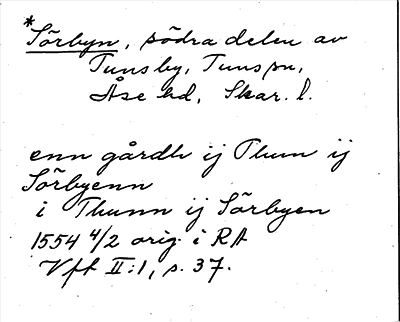 * Sörbyn, södra delen av
Tunsby, Tuns sn,
Åse hd, Skar. l.
enn gårdh ij Thun ij
Sörbyenn
i Thunn ij Sörbyen
1554 4/2 orig. i RA
Vft II:1, s. 37.